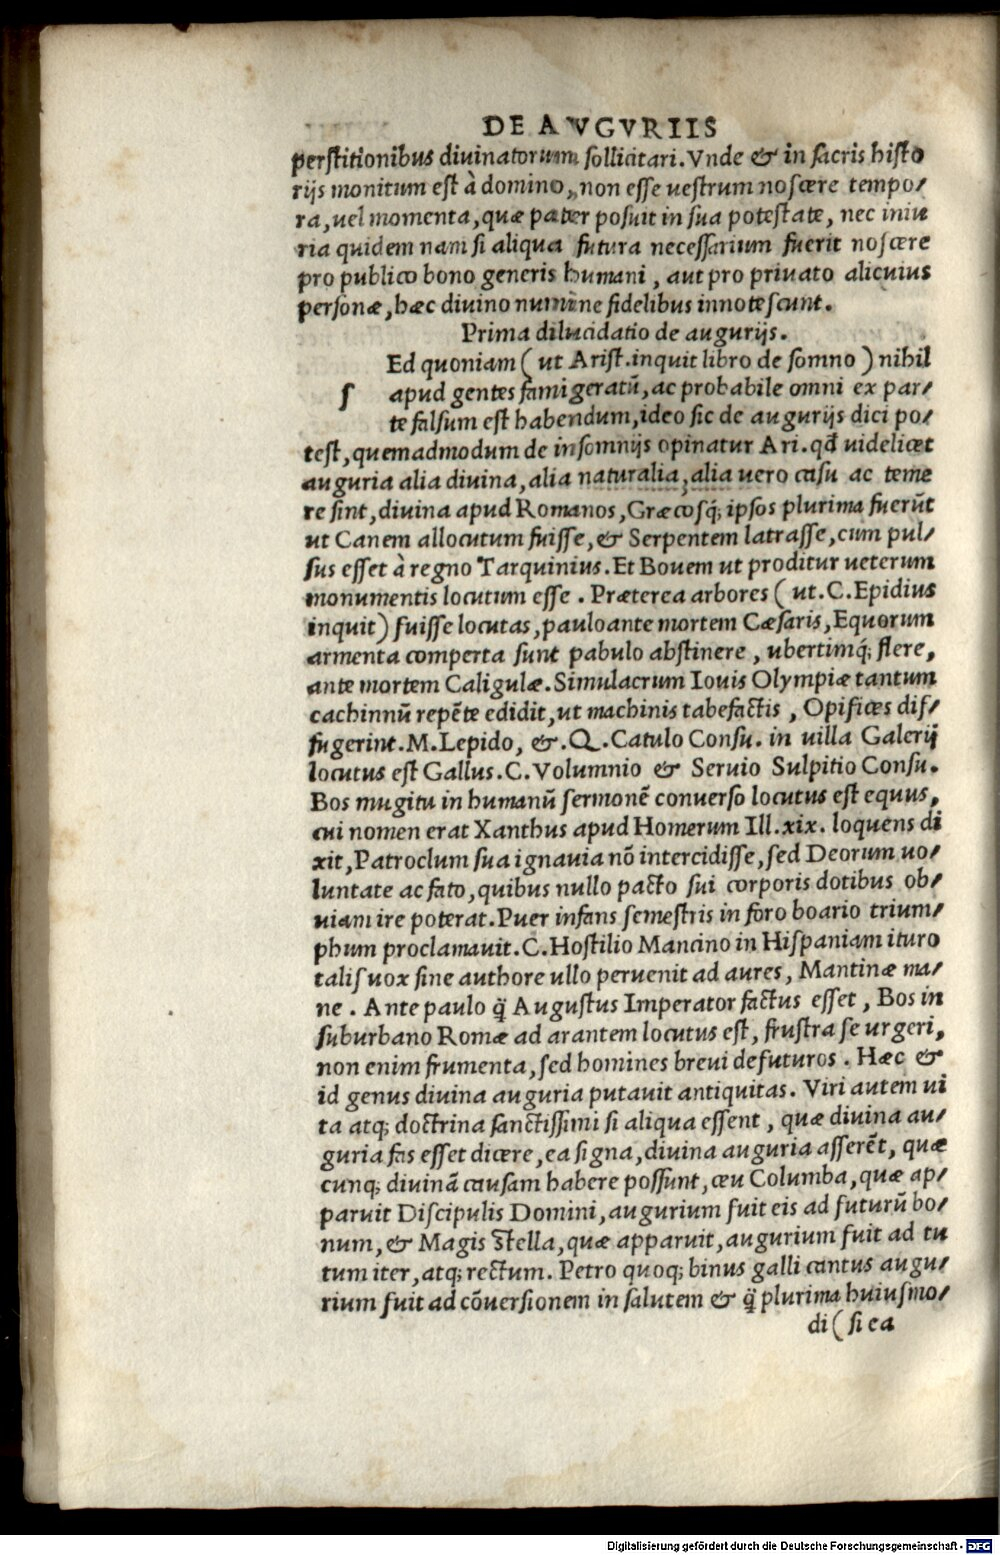 DE AVGVRIIS
perstitionibus diuinatorum sollicitari. Vnde & in sacris histo
rijs monitum est à domino, non esse uestrum noscere tempo/
ra, uel momenta, quæ pater posuit in sua potestate, nec iniu
ria quidem nam si aliqua futura necessarium fuerit noscere
pro publico bono generis humani, aut pro priuato alicuius
personæ, hæc diuino numine fidelibus innotescunt.
Prima dilucidatio de augurijs.
Ed quoniam (ut Arist. inquit libro de somno) nihil
ſ apud gentes famigeratū, ac probabile omni ex par/
te falsum est habendum, ideo sic de augurijs dici po/
test, quemadmodum de insomnijs opinatur Ari. qđ uidelicet
auguria alia diuina, alia naturalia, alia uero casu ac teme
re sint, diuina apud Romanos, Græcosq; ipsos plurima fuerūt
ut Canem allocutum fuisse, & Serpentem latrasse, cum pul/
sus esset à regno Tarquinius. Et Bouem ut proditur ueterum
monumentis locutum esse. Præterea arbores (ut. C. Epidius
inquit) fuisse locutas, pauloante mortem Cæsaris, Equorum
armenta comperta sunt pabulo abstinere, ubertimq; flere,
ante mortem Caligulæ. Simulacrum Iouis Olympiæ tantum
cachinnū repēte edidit, ut machinis tabefactis, Opifices dif/
fugerint. M. Lepido, &. Q. Catulo Consu. in uilla Galerij
locutus est Gallus. C. Volumnio & Seruio Sulpitio Consu.
Bos mugitu in humanū sermonē conuerso locutus est equus,
cui nomen erat Xanthus apud Homerum Ill. xix. loquens di
xit, Patroclum sua ignauia nō intercidisse, sed Deorum uo/
luntate ac fato, quibus nullo pacto sui corporis dotibus ob/
uiam ire poterat. Puer infans semestris in foro boario trium/
phum proclamauit. C. Hostilio Mancino in Hispaniam ituro
talis uox sine authore ullo peruenit ad aures, Mantinæ ma/
ne. Ante paulo q̄ Augustus Imperator factus esset, Bos in
suburbano Romæ ad arantem locutus est, frustra se urgeri,
non enim frumenta, sed homines breui defuturos. Hæc &
id genus diuina auguria putauit antiquitas. Viri autem ui
ta atq; doctrina sanctissimi si aliqua essent, quæ diuina au/
guria fas esset dicere, ea signa, diuina auguria asserēt, quæ
cunq; diuinā causam habere possunt, ceu Columba, quæ ap/
paruit Discipulis Domini, augurium fuit eis ad futurū bo/
num, & Magis Stella, quæ apparuit, augurium fuit ad tu
tum iter, atq; rectum. Petro quoq; binus galli cantus augu/
rium fuit ad cōuersionem in salutem & q̄ plurima huiusmo/
di (si ea
Digitalisierung gefördert durch die Deutsche Forschungsgemeinschaft - DFG